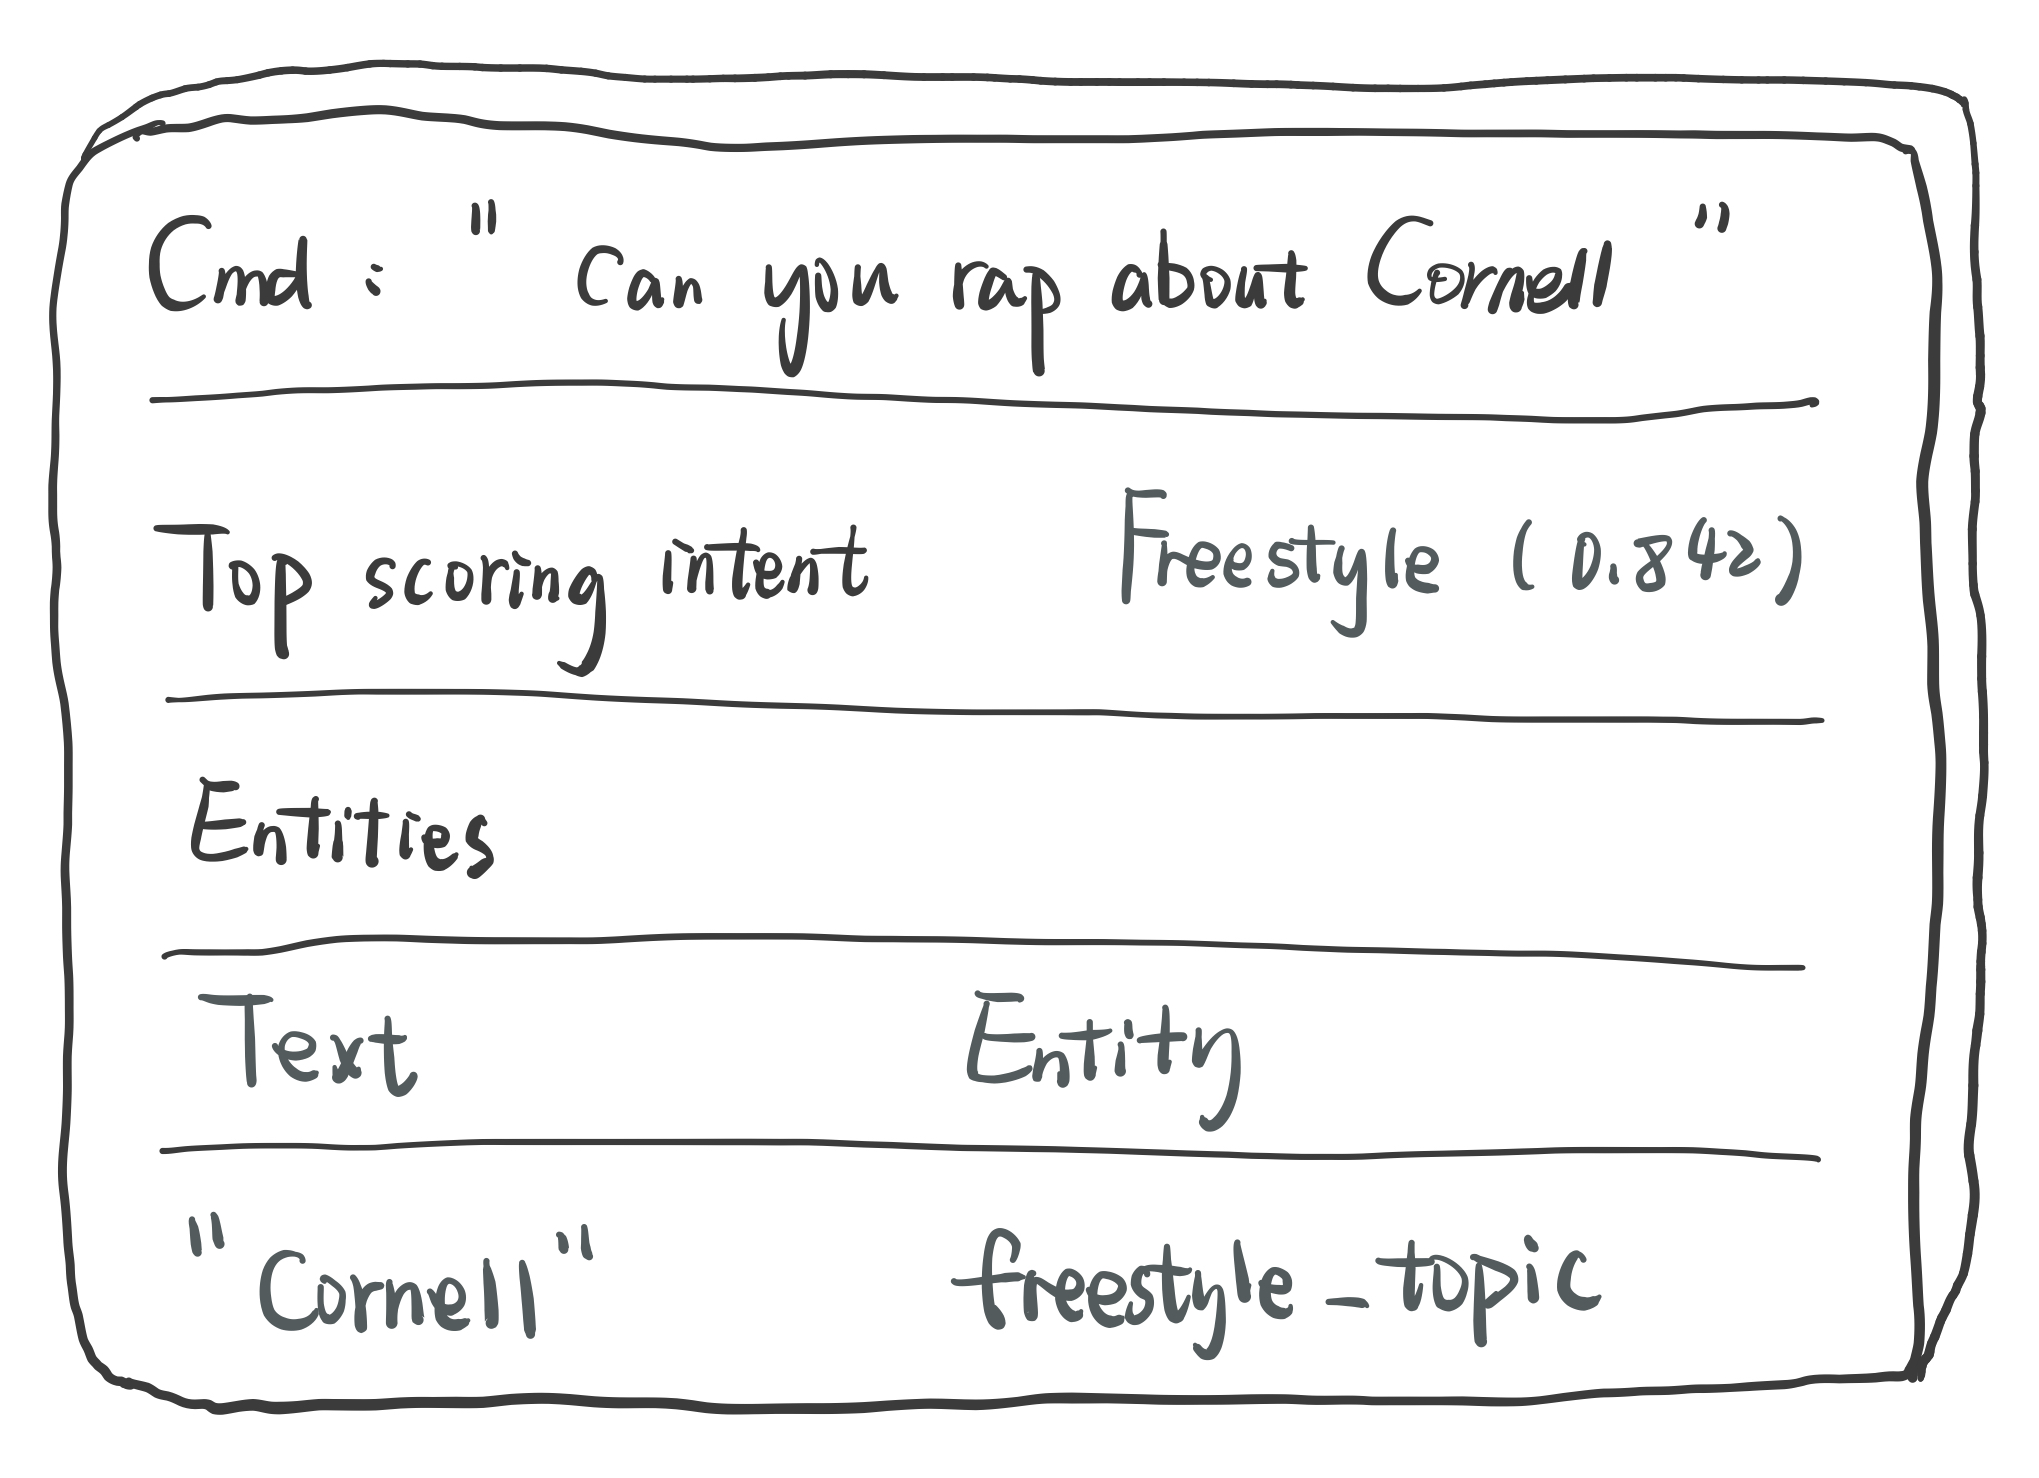 Cmd : " Can you rap about Cornell "
Top scoring intent Freestyle ( 0.842 )
Entities
Text Entity
"Cornell" freestyle_topic